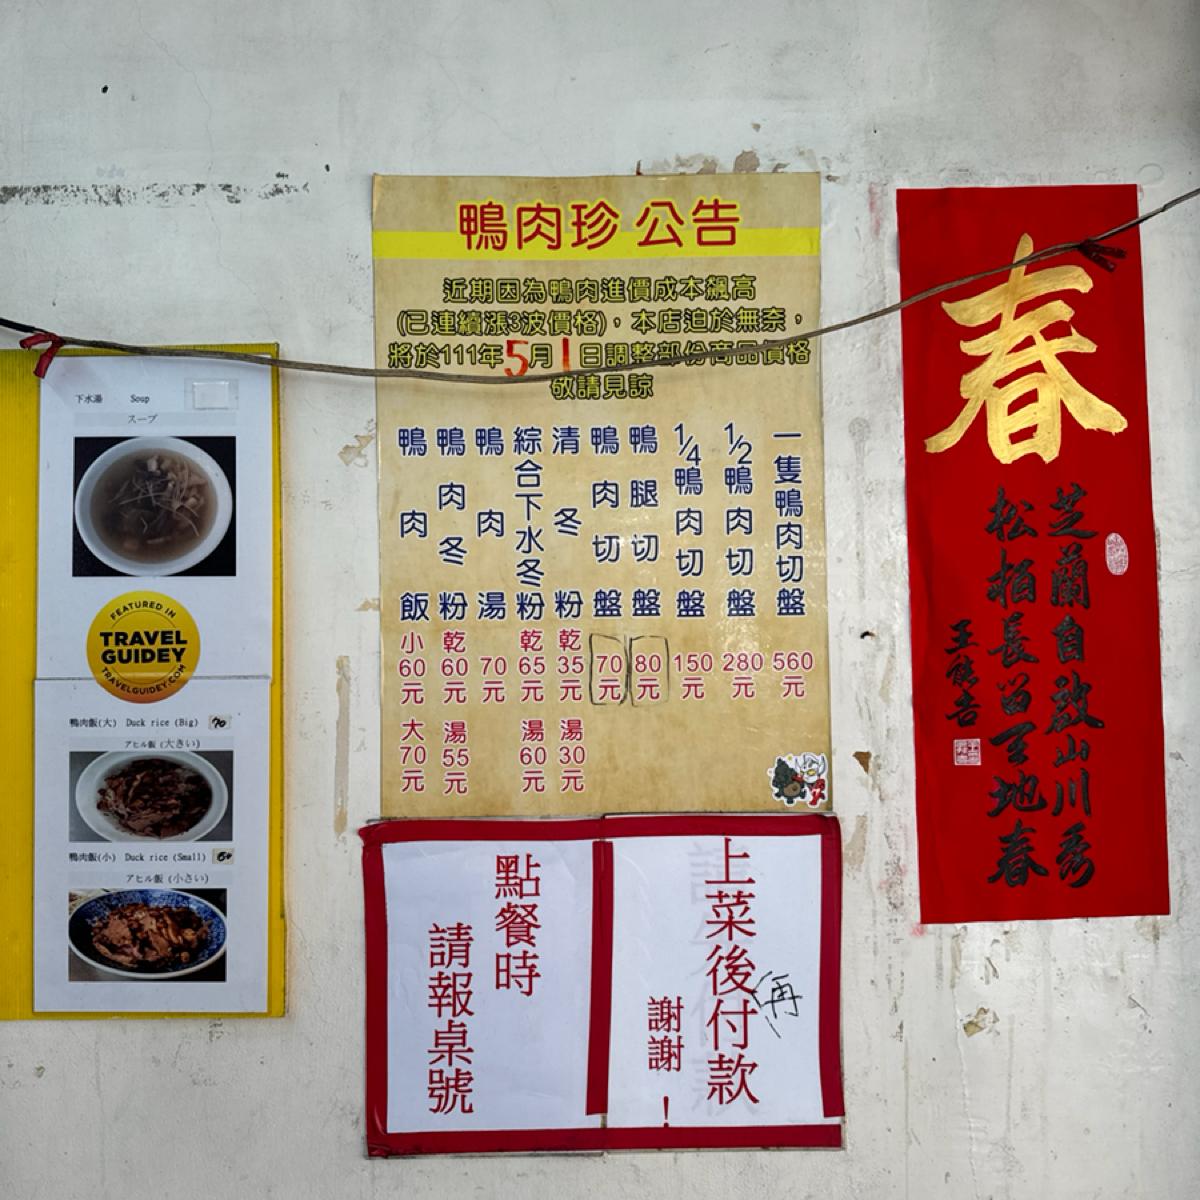 下水湯 Soup
スープ
FEATURED IN
TRAVEL
GUIDEY
TRAVELGUIDEY.COM
鴨肉飯(大) Duck rice (Big) 70
アヒル飯 (大きい)
鴨肉飯(小) Duck rice (Small) 60
アヒル飯 (小さい)
鴨肉珍 公告
近期因為鴨肉進價成本飆高
(已連續漲3波價格)，本店迫於無奈，
將於111年5月1日調整部份商品價格
敬請見諒
一隻鴨肉切盤 560元
1/2鴨肉切盤 280元
1/4鴨肉切盤 150元
鴨腿切盤 80元
鴨肉切盤 70元
清冬粉 乾35元 湯30元
綜合下水冬粉 乾65元 湯60元
鴨肉湯 70元
鴨肉冬粉 乾60元 湯55元
鴨肉飯 小60元 大70元
上菜後再付款
謝謝！
點餐時
請報桌號
春
芝蘭自啟山川秀
松柏長留天地春